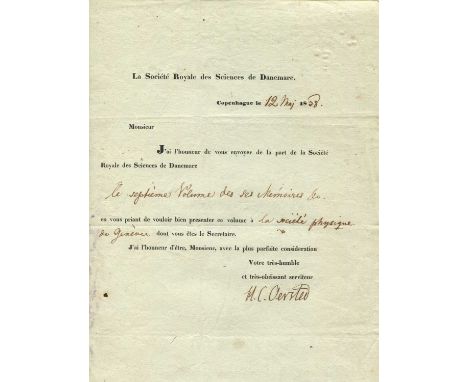 La Société Royale des Sciences de Danemarc.
Copenhague le 12 Maj 1838.
Monsieur
J'ai l'honneur de vous envoyer de la part de la Société
Royale des Sciences de Danemarc
le septième Volume des ses Mémoires
en vous priant de vouloir bien presenter ce volume à la société physique
de Genève dont vous êtes le Secretaire.
J'ai l'honneur d'être, Monsieur, avec la plus parfaite consideration
Votre très-humble
et très-obéissant serviteur
H. C. Oersted